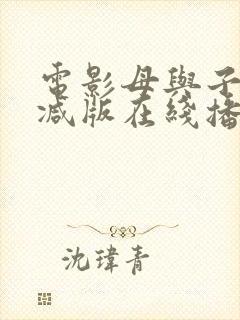 電影母與子
減版在綫播
沈瑋青